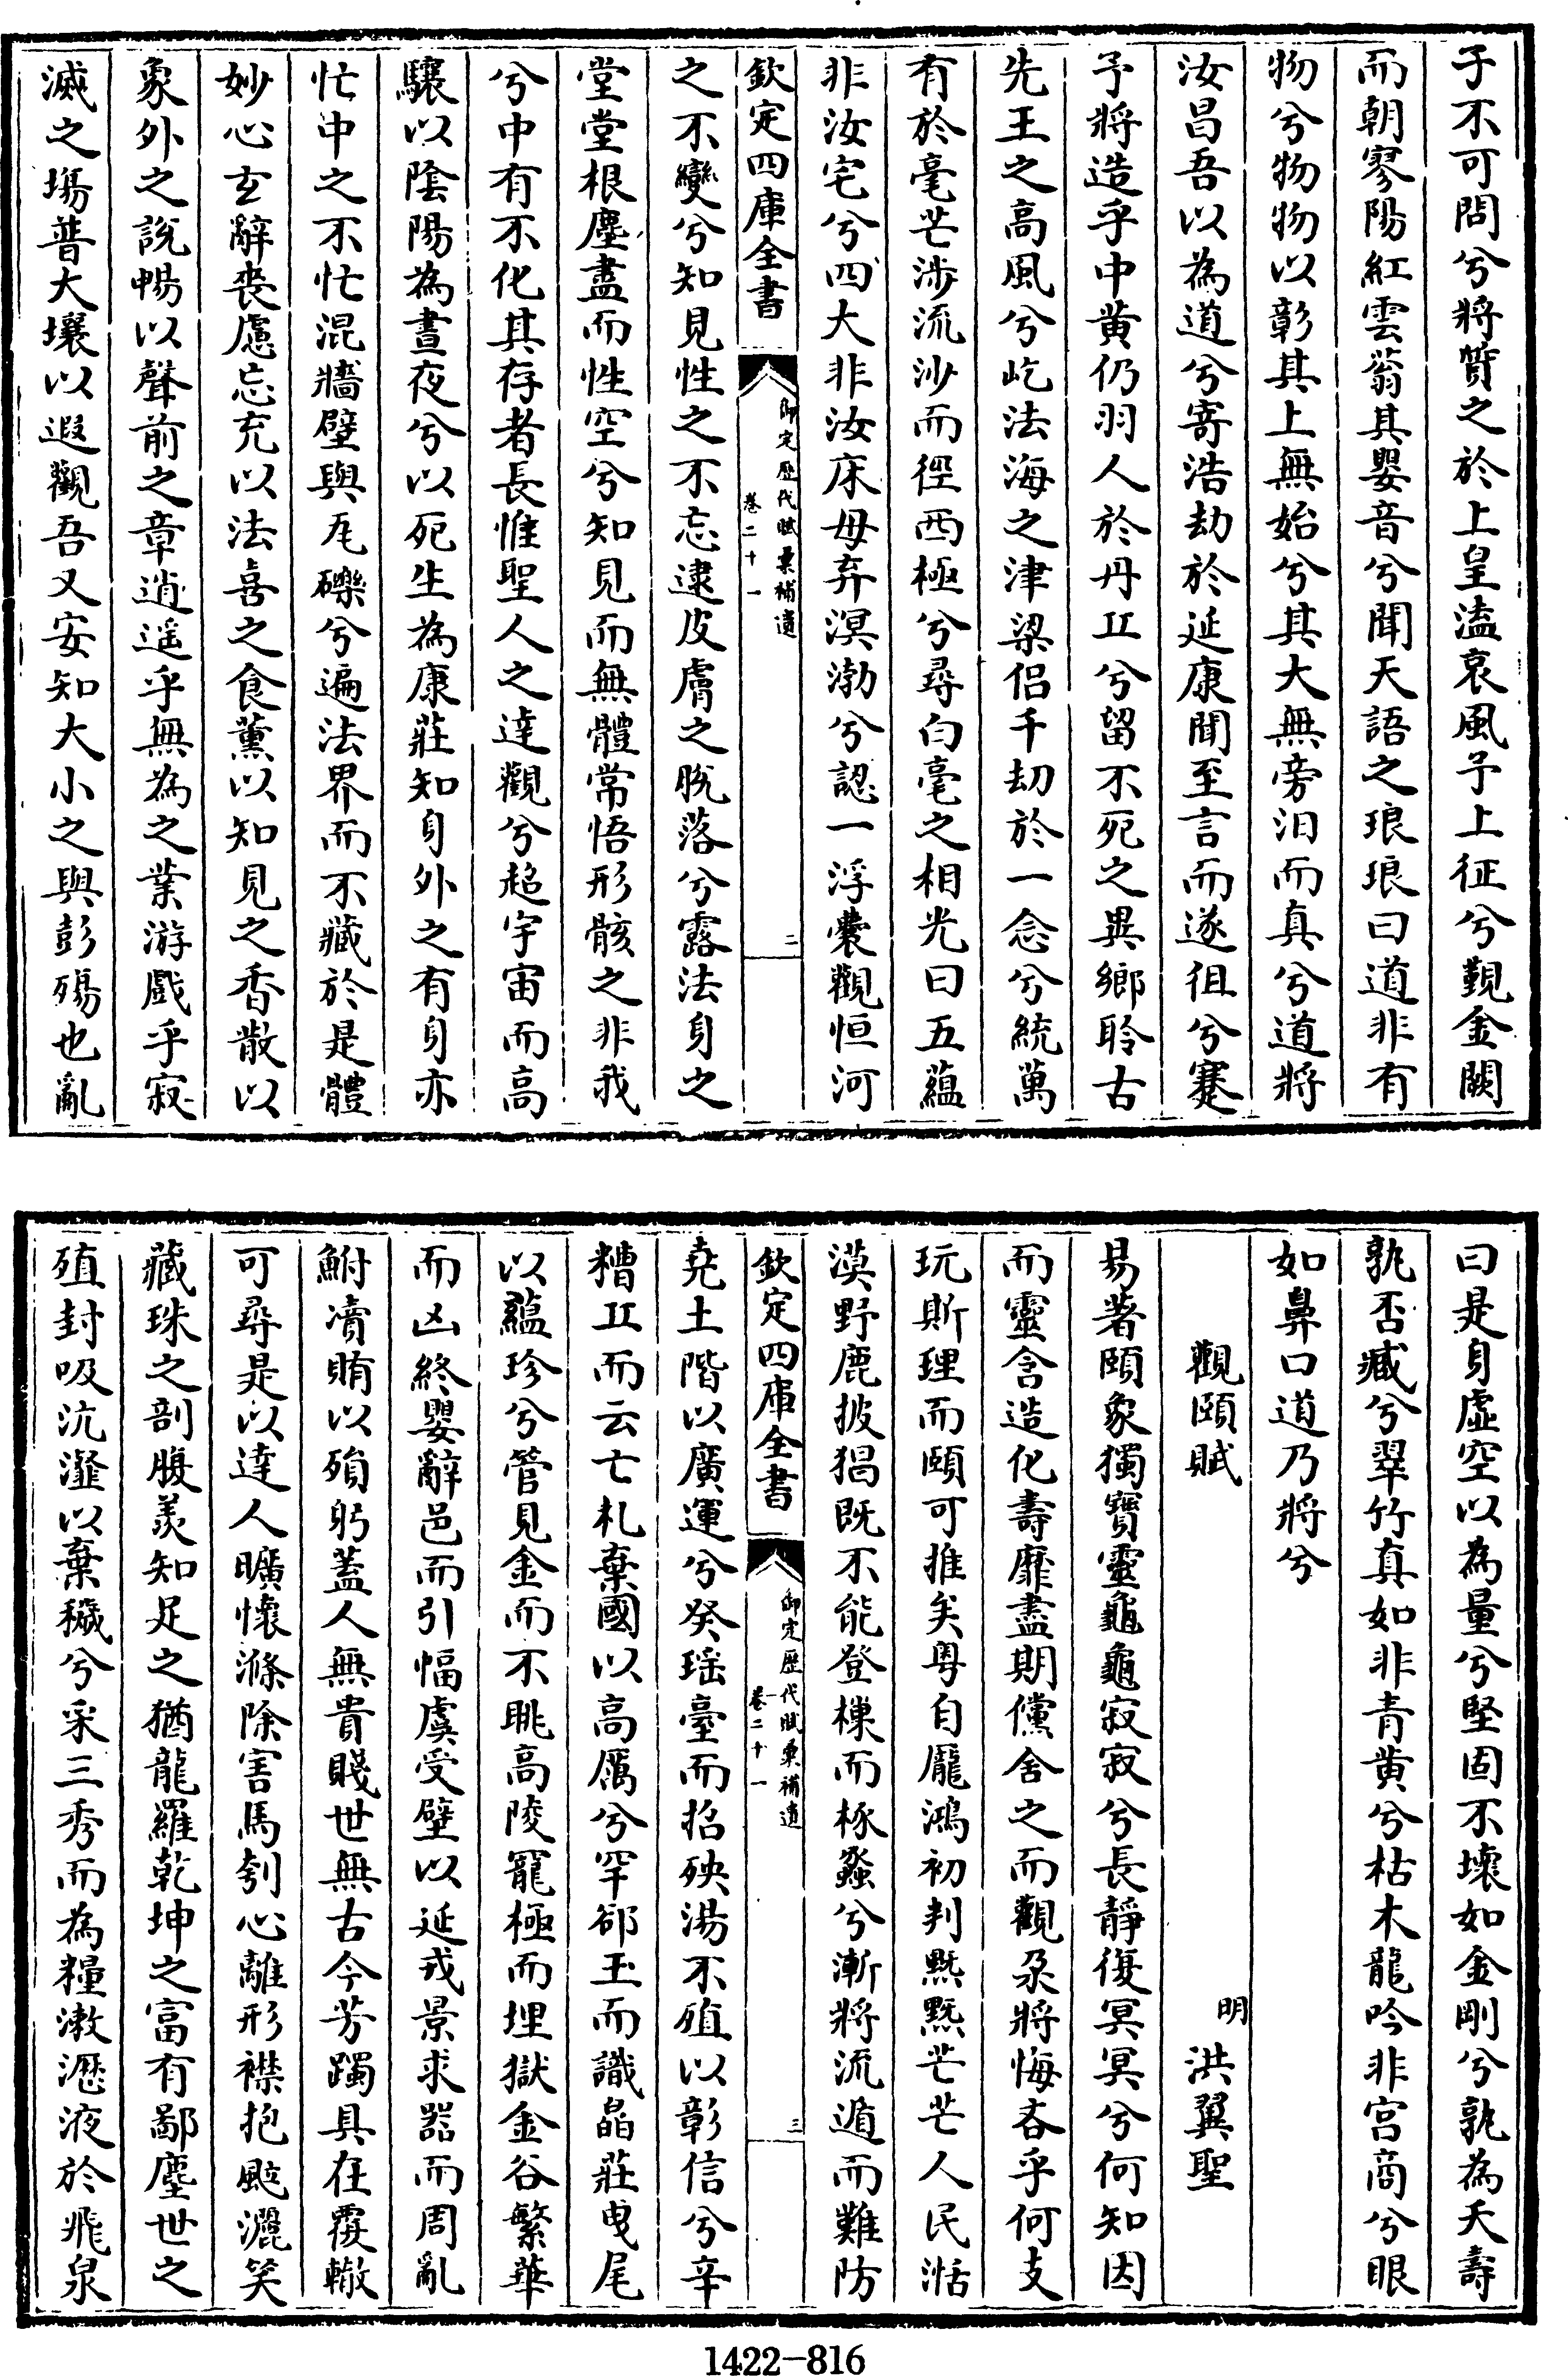 子不可問兮將質之於上皇溘哀風予上征兮覲金闕
而朝寥陽紅雲蓊其嬰音兮聞天語之琅琅曰道非有
物兮物物以彰其上無始兮其大無旁汨而真兮道將
汝昌吾以為道兮寄浩劫於延康聞至言而遂徂兮蹇
予將造乎中黄仍羽人於丹丘兮留不死之異鄉聆古
先王之高風兮屹法海之津梁侣千刼於一念兮統萬
有於毫芒涉流沙而徑西極兮尋白毫之相光曰五藴
非汝宅兮四大非汝床毋弃溟渤兮認一浮囊觀恒河
欽定四庫全書
御定歷代賦彙補遺
卷二十一
二
之不變兮知見性之不忘逮皮膚之脫落兮露法身之
堂堂根塵盡而性空兮知見而無體常悟形骸之非我
兮中有不化其存者長惟聖人之達觀兮超宇宙而高
驤以陰陽為晝夜兮以死生為康莊知身外之有身亦
忙中之不忙混牆壁與瓦礫兮遍法界而不藏於是體
妙心玄辭喪慮忘充以法喜之食薰以知見之香散以
象外之說暢以聲前之章逍遥乎無為之業游戲乎寂
滅之場普大壤以遐觀吾又安知大小之與彭殤也亂
曰是身虛空以為量兮堅固不壞如金剛兮孰為夭壽
孰否臧兮翠竹真如非青黄兮枯木龍吟非宫商兮眼
如鼻口道乃將兮
觀頤賦
明 洪翼聖
易著頤象獨寳靈龜龜寂寂兮長靜復冥冥兮何知因
而靈含造化壽靡盡期儻舍之而觀朶將悔吝乎何支
玩斯理而頤可推矣粤自龎鴻初判黙黙芒芒人民湉
漠野鹿披猖既不能登榛而椓蠡兮漸將流遁而難防
欽定四庫全書
御定歷代賦彙補遺
卷二十一
三
堯土階以廣運兮癸瑶臺而招殃湯不殖以彰信兮辛
糟丘而云亡札棄國以高厲兮罕郤玉而識晶莊曳尾
以藴珍兮管見金而不眺高陵寵極而埋獄金谷繁華
而凶終嬰辭邑而引幅虞受壁以延戎景求器而周亂
鮒凟賄以殞躬蓋人無貴賤世無古今芳躅具在覆轍
可尋是以達人曠懷滌除害馬刳心離形襟抱飈灑笑
藏珠之剖腹羡知足之猶龍羅乾坤之富有鄙塵世之
殖封吸沆瀣以棄穢兮采三秀而為糧漱瀝液於飛泉
1422—816